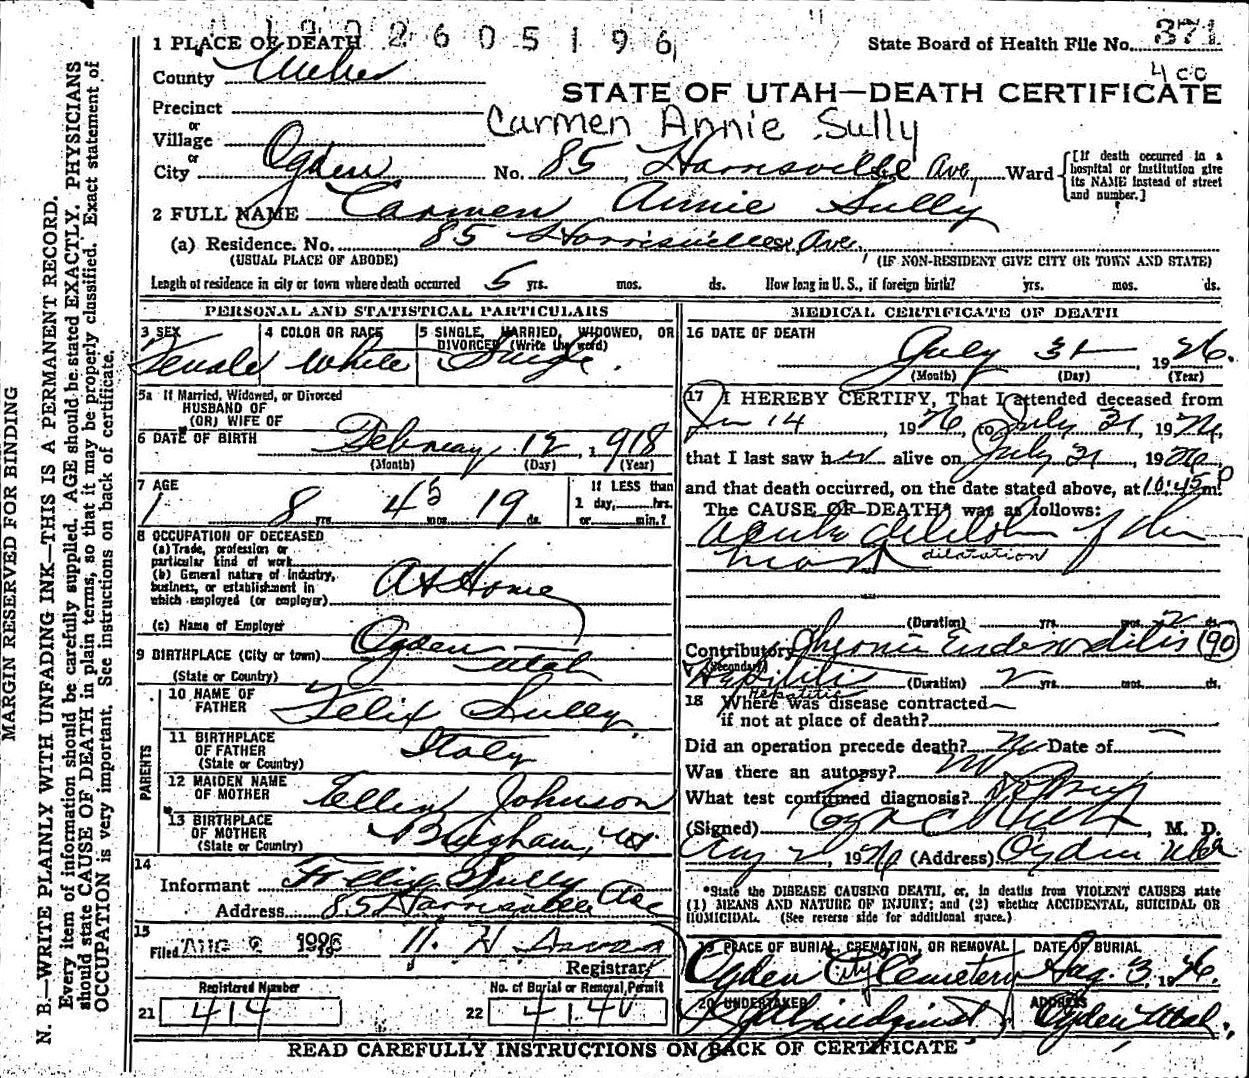 1926 0 5 1 9 6
1 PLACE OF DEATH
State Board of Health File No. 371
4 cc
County Weber
STATE OF UTAH—DEATH CERTIFICATE
Precinct
or
Village
Carmen Annie Sully
or
City Ogden No. 85, Harrisville Ave, Ward [If death occurred in a hospital or institution give its NAME instead of street and number.]
2 FULL NAME Carmen Annie Sully
(a) Residence. No. 85 Harrisville Ave.
(USUAL PLACE OF ABODE) (IF NON-RESIDENT GIVE CITY OR TOWN AND STATE)
Length of residence in city or town where death occurred 5 yrs. mos. ds. How long in U.S., if foreign birth? yrs. mos. ds.
PERSONAL AND STATISTICAL PARTICULARS
3 SEX Female
4 COLOR OR RACE White
5 SINGLE, MARRIED, WIDOWED, OR DIVORCED (Write the word) Single.
5a If Married, Widowed, or Divorced
HUSBAND OF
(OR) WIFE OF
6 DATE OF BIRTH February 12, 1918
(Month) (Day) (Year)
7 AGE 8 yrs. 5 mos. 19 ds.
If LESS than
1 day, hrs.
or min.?
8 OCCUPATION OF DECEASED
(a) Trade, profession or
particular kind of work
(b) General nature of Industry,
business, or establishment in
which employed (or employer) At Home
(c) Name of Employer
9 BIRTHPLACE (City or town) Ogden
(State or Country) Utah
PARENTS
10 NAME OF
FATHER Felix Sully
11 BIRTHPLACE
OF FATHER Italy
(State or Country)
12 MAIDEN NAME
OF MOTHER Ellen Johnson
13 BIRTHPLACE
OF MOTHER Bingham, Ut
(State or Country)
14
Informant Felix Sully
Address 85 Harrisville Ave
15
Filed AUG 2 1926 H. H.
Registrar
Registered Number No. of Burial or Removal Permit
21 414 22 4140
MEDICAL CERTIFICATE OF DEATH
16 DATE OF DEATH
July 31 1926.
(Month) (Day) (Year)
17 I HEREBY CERTIFY, That I attended deceased from
Jun 14 1926, to July 31, 1926,
that I last saw her alive on July 31, 1926,
and that death occurred, on the date stated above, at 10:45 P m.
The CAUSE OF DEATH* was as follows:
Acute dilitation of the
heart dilatation
(Duration) yrs. mos. 2 ds.
Contributory Chronic Endocarditis (90)
(Secondary)
Hepatitis (Duration) 2 yrs. mos. ds.
Hepatitis
18 Where was disease contracted
if not at place of death?
Did an operation precede death? No Date of
Was there an autopsy? No
What test confirmed diagnosis?
(Signed) , M. D.
Aug 2, 1926 (Address) Ogden Utah
*State the DISEASE CAUSING DEATH, or, in deaths from VIOLENT CAUSES state
(1) MEANS AND NATURE OF INJURY; and (2) whether ACCIDENTAL, SUICIDAL OR
HOMICIDAL. (See reverse side for additional space.)
19 PLACE OF BURIAL, CREMATION, OR REMOVAL DATE OF BURIAL
Ogden City Cemetery Aug. 3, 1926.
20 UNDERTAKER ADDRESS
Lindquist Ogden, Utah,
READ CAREFULLY INSTRUCTIONS ON BACK OF CERTIFICATE
MARGIN RESERVED FOR BINDING
N. B.—WRITE PLAINLY WITH UNFADING INK—THIS IS A PERMANENT RECORD.
Every item of information should be carefully supplied. AGE should be stated EXACTLY. PHYSICIANS
should state CAUSE OF DEATH in plain terms, so that it may be properly classified. Exact statement of
OCCUPATION is very important. See instructions on back of certificate.